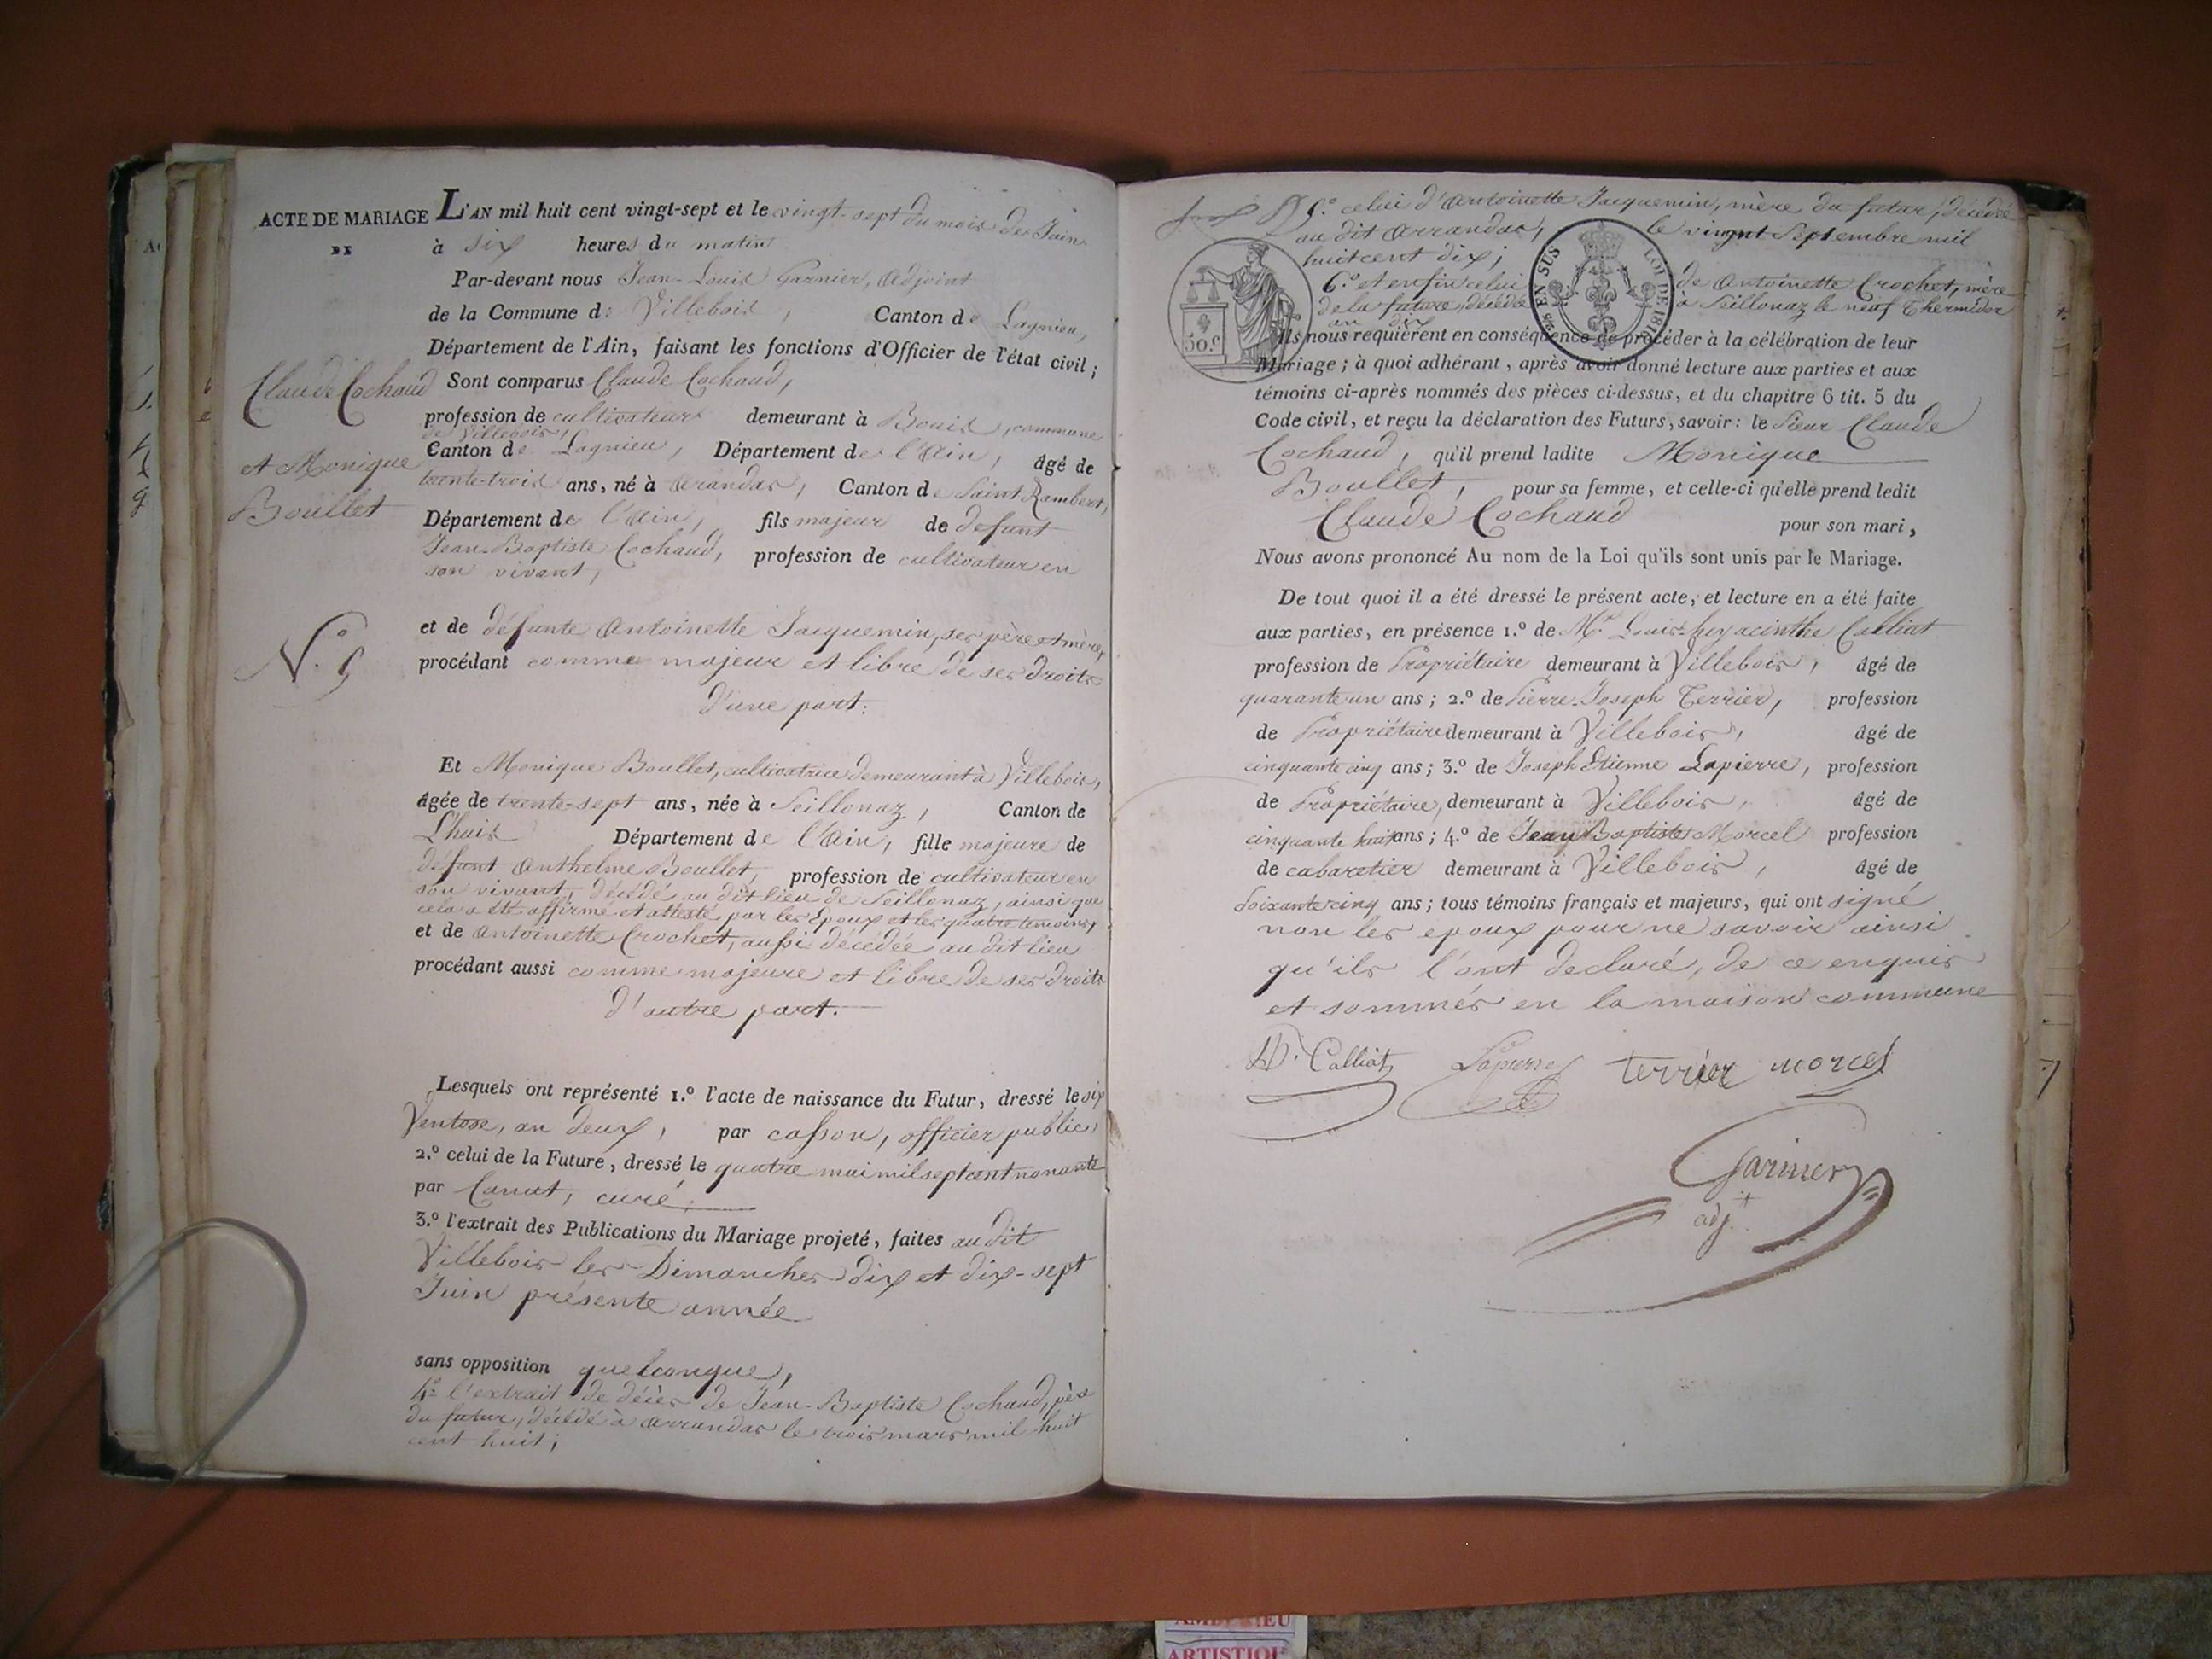 ACTE DE MARIAGE
DE
Claude Cochaud
et Monique
Boullet
N.° 5
L'AN mil huit cent vingt-sept et le vingt-sept du mois de Juin
à six heures du matin
Par-devant nous Jean-Louis Garnier, Adjoint
de la Commune de Villebois, Canton de Lagnieu,
Département de l'Ain, faisant les fonctions d'Officier de l'état civil;
Sont comparus Claude Cochaud,
profession de cultivateur demeurant à Bouis, commune
de Villebois,
Canton de Lagnieu, Département de l'Ain, âgé de
trente-trois ans, né à Arandas, Canton de Saint Rambert,
Département de l'Ain, fils majeur de defunt
Jean-Baptiste Cochaud, profession de cultivateur en
son vivant,
et de défunte Antoinette Jacquemin, ses père et mère,
procédant comme majeur et libre de ses droits
d'une part:
Et Monique Boullet, cultivatrice demeurant à Villebois,
âgée de trente-sept ans, née à Seillonaz, Canton de
L'huis Département de l'Ain, fille majeure de
défunt Anthelme Boullet, profession de cultivateur en
son vivant, décédé au dit lieu de Seillonaz, ainsi que
cela a été affirmé et attesté par les Epoux et les quatre temoins,
et de Antoinette Crochet, aussi décédée au dit lieu
procédant aussi comme majeure et libre de ses droits
d'autre part.
Lesquels ont représenté 1.° l'acte de naissance du Futur, dressé le six
Ventose, an deux, par casson, officier public,
2.° celui de la Future, dressé le quatre mai mil sept cent nonante
par Canat, curé.
3.° l'extrait des Publications du Mariage projeté, faites au dit
Villebois les Dimanches dix et dix-sept
Juin présente année
sans opposition quelconque,
4.° l'extrait de décès de Jean-Baptiste Cochaud, père
du futur, décédé à Arrandas le trois mars mil huit
cent huit;
5.° celui d'Antoinette Jacquemin, mère du futur, décédée
au dit Arrandas, le vingt Septembre mil
huit cent dix;
6.° et enfin celui de Antoinette Crochet, mère
de la future, décédée à Seillonaz le neuf Thermidor
an dix
50.c
EN SUS
LOI DE 1816
Ils nous requièrent en conséquence de procéder à la célébration de leur
Mariage; à quoi adhérant, après avoir donné lecture aux parties et aux
témoins ci-après nommés des pièces ci-dessus, et du chapitre 6 tit. 5 du
Code civil, et reçu la déclaration des Futurs, savoir: le Sieur Claude
Cochaud, qu'il prend ladite Monique
Boullet, pour sa femme, et celle-ci qu'elle prend ledit
Claude Cochaud pour son mari,
Nous avons prononcé Au nom de la Loi qu'ils sont unis par le Mariage.
De tout quoi il a été dressé le présent acte, et lecture en a été faite
aux parties, en présence 1.° de Mr. Louis-hyacinthe Calliat
profession de Propriétaire demeurant à Villebois, âgé de
quarante un ans; 2.° de Pierre-Joseph Terrier, profession
de Propriétaire demeurant à Villebois, âgé de
cinquante cinq ans; 3.° de Joseph Etienne Lapierre, profession
de Propriétaire, demeurant à Villebois, âgé de
cinquante huit ans; 4.° de Jean Baptiste Morcel profession
de cabaretier demeurant à Villebois, âgé de
Soixante cinq ans; tous témoins français et majeurs, qui ont signé
non les epoux pour ne savoir ainsi
qu'ils l'ont declaré, de ce enquis
et sommés en la maison commune
Calliat Lapierre terrier morcel
Garnier
adj.t
ARTISTIQ